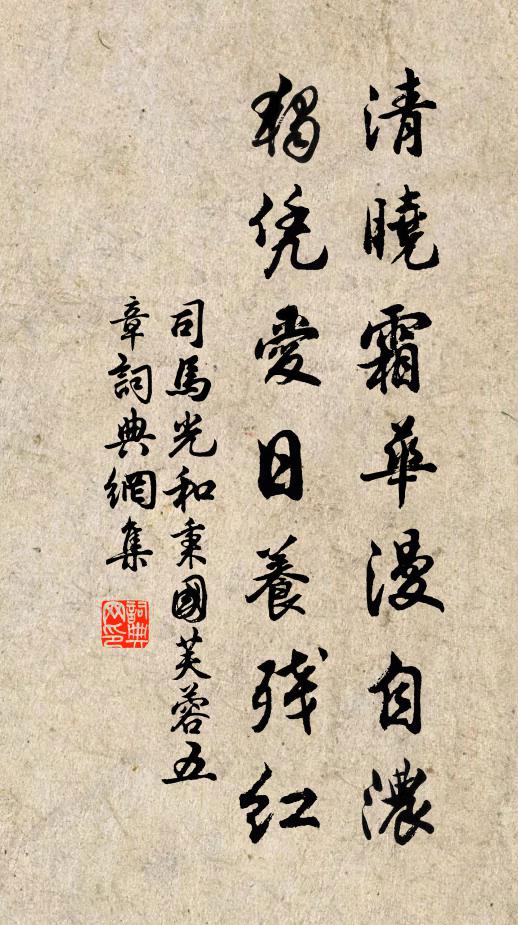 清曉霜華漫自濃
獨凭愛日養殘紅
司馬光和秉國芙蓉五
章詞典網集
詞典
网印